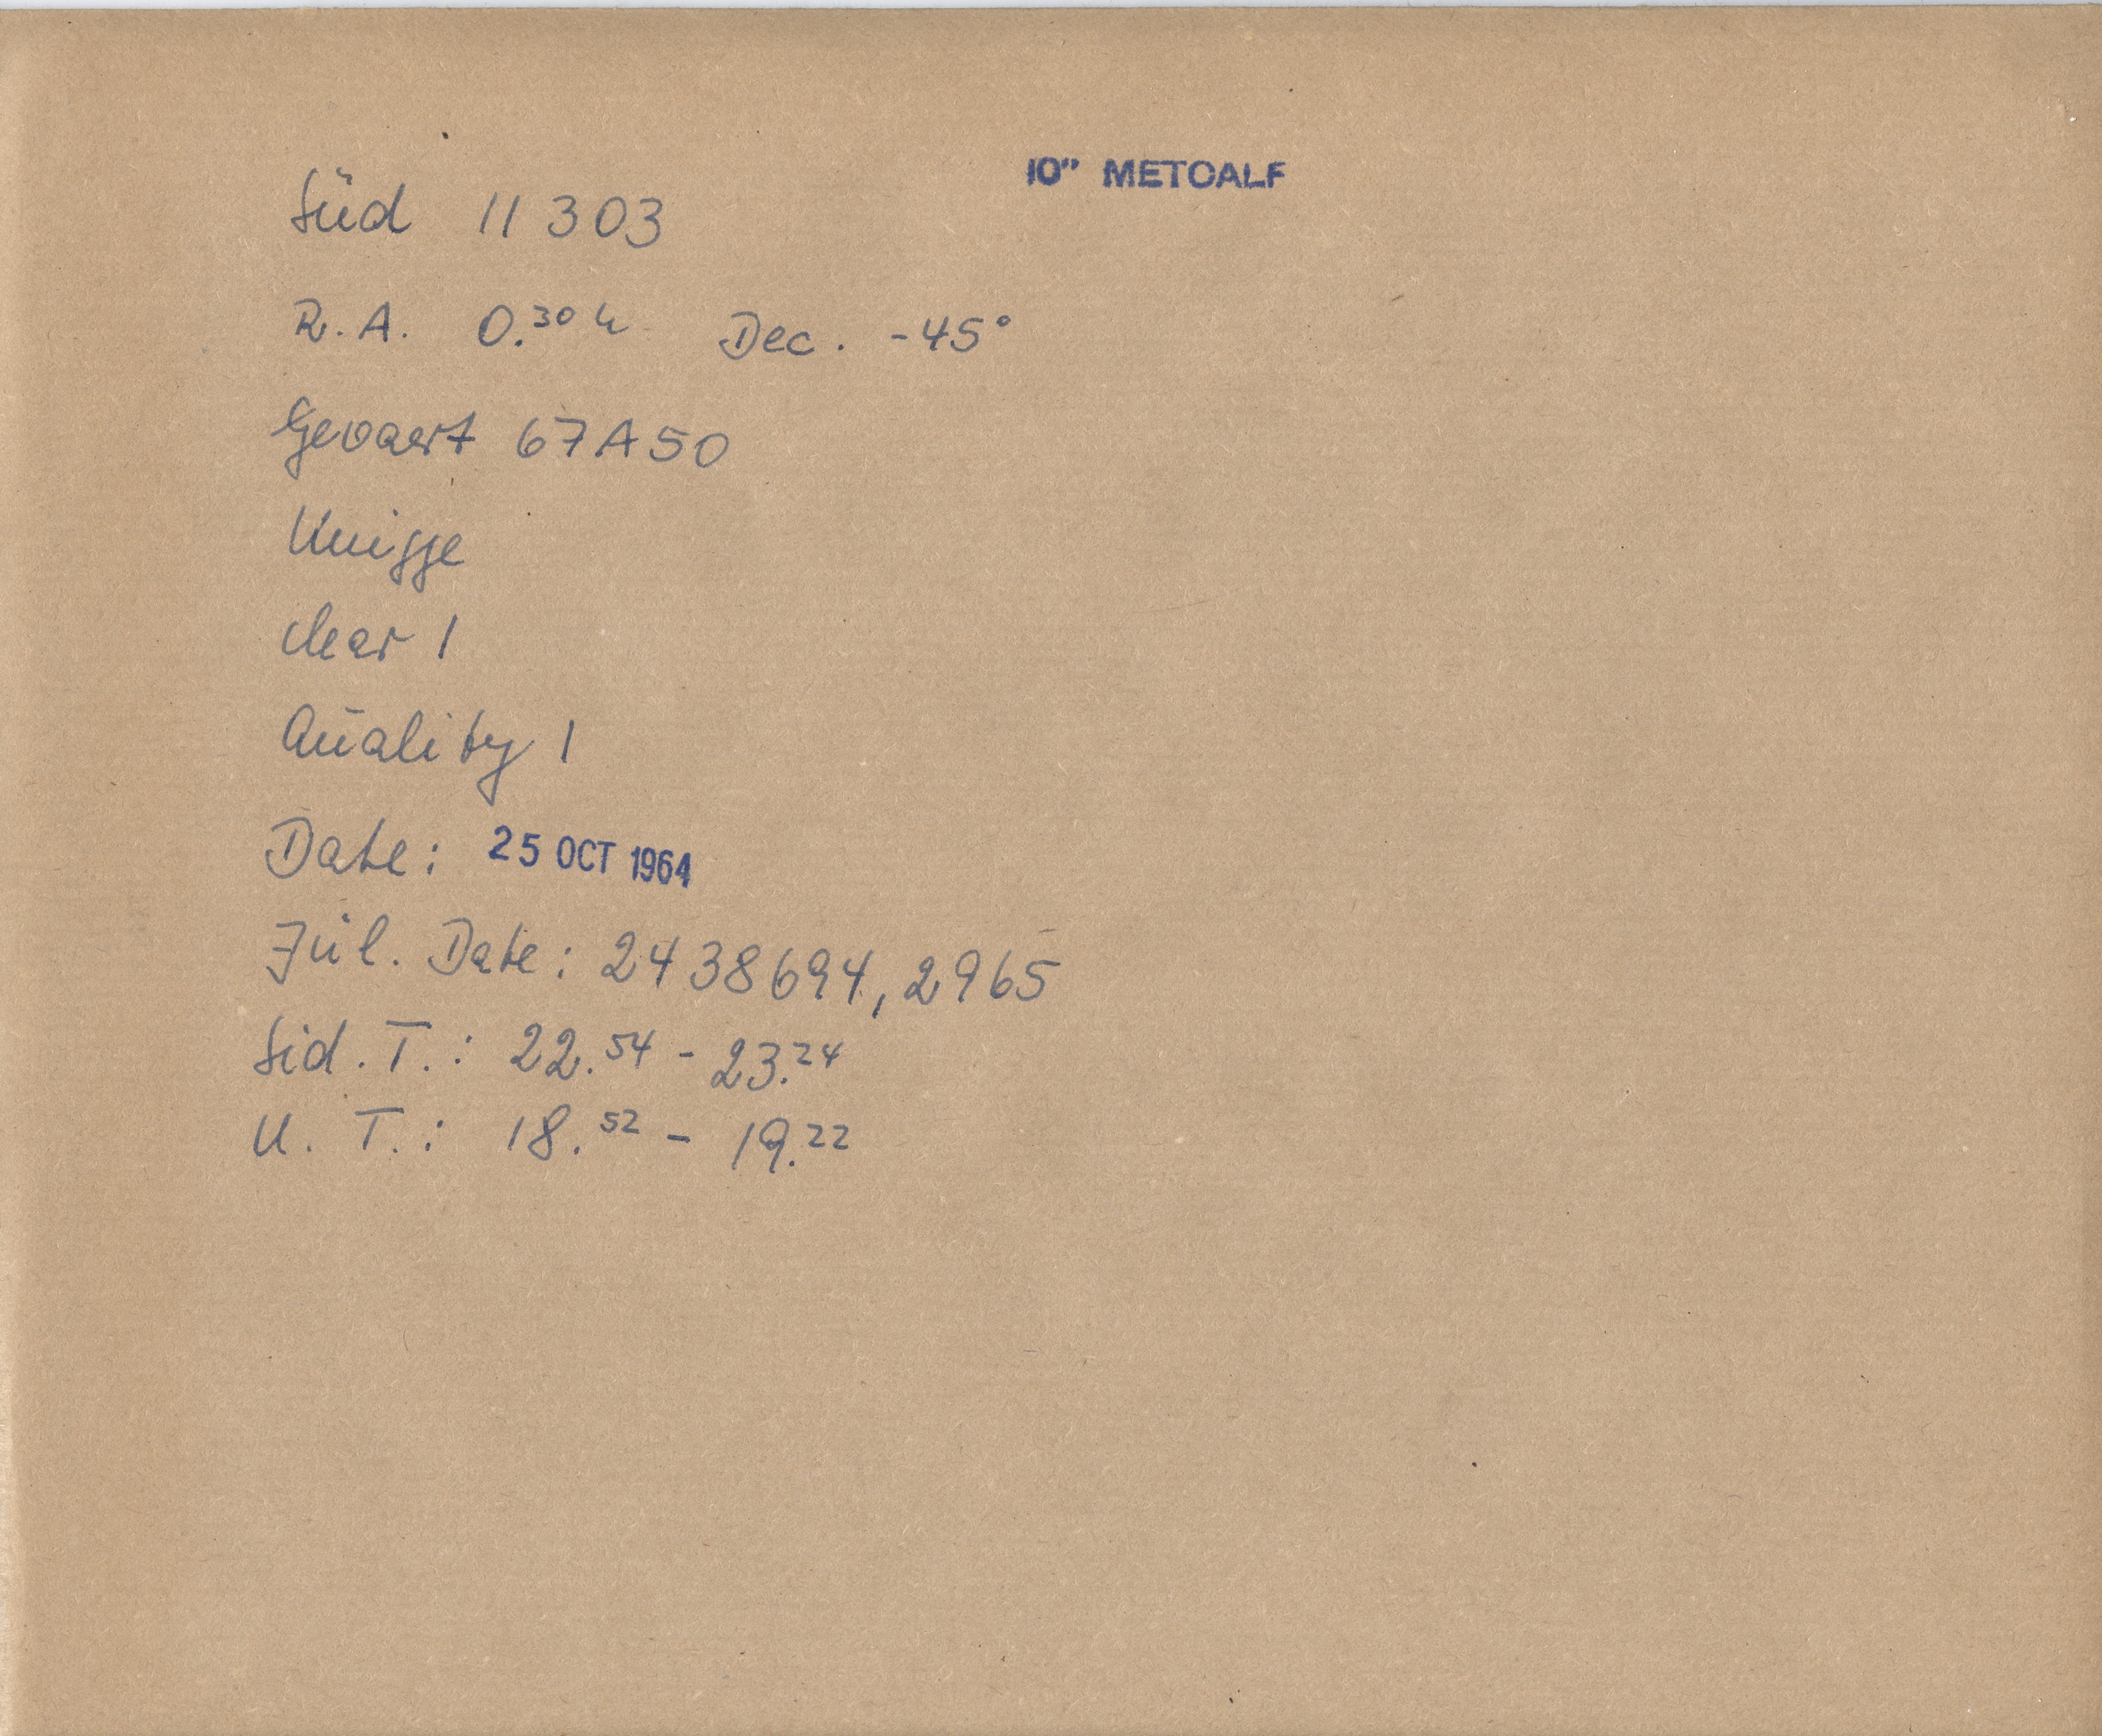 10" METCALF
Süd 11303
R.A. 0.30 h Dec. -45°
Gevaert 67A50
Knigge
clear 1
Quality 1
Date: 25 OCT 1964
Jul. Date: 2438694,2965
Sid. T.: 22.54 - 23.24
U. T.: 18.52 - 19.22